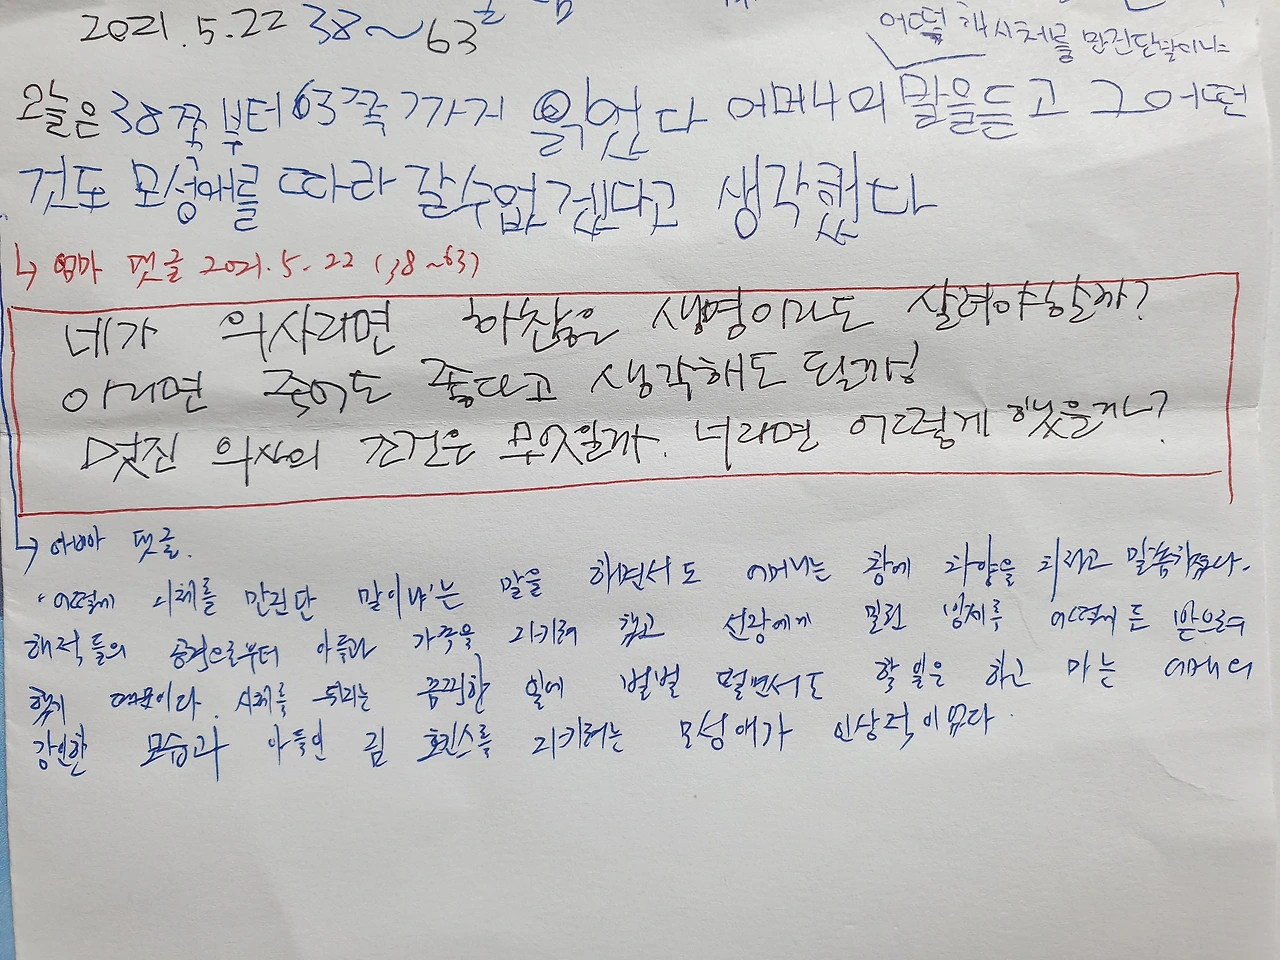 2021.5.22 38~63쪽
어떻해 시체를 만진단 말이니
오늘은 38쪽부터 63쪽 까지 읽었다 어머니의 말을듣고 그어떤
것도 모성애를 따라 갈수없겠다고 생각했다
↳ 엄마 댓글 2021.5.22 (38~63)
네가 의사라면 하찮은 생명이라도 살려야할까?
아니면 죽어도 좋다고 생각해도 될까!
멋진 의사의 조건은 무엇일까. 너라면 어떻게 했을까?
↳ 아빠 댓글.
"어떻게 시체를 만진단 말이냐'는 말을 하면서도 어머니는 창에 차양을 치라고 말씀하셨다.
해적들의 공격으로부터 아들과 가족을 지키려 했고 선장에게 밀린 방세를 어떻게든 받으려
했기 때문이다. 시체를 뒤지는 끔찍한 일에 벌벌 떨면서도 할 일은 하고 마는 어머니의
강인한 모습과 아들인 짐 호킨스를 지키려는 모성애가 인상적이었다.